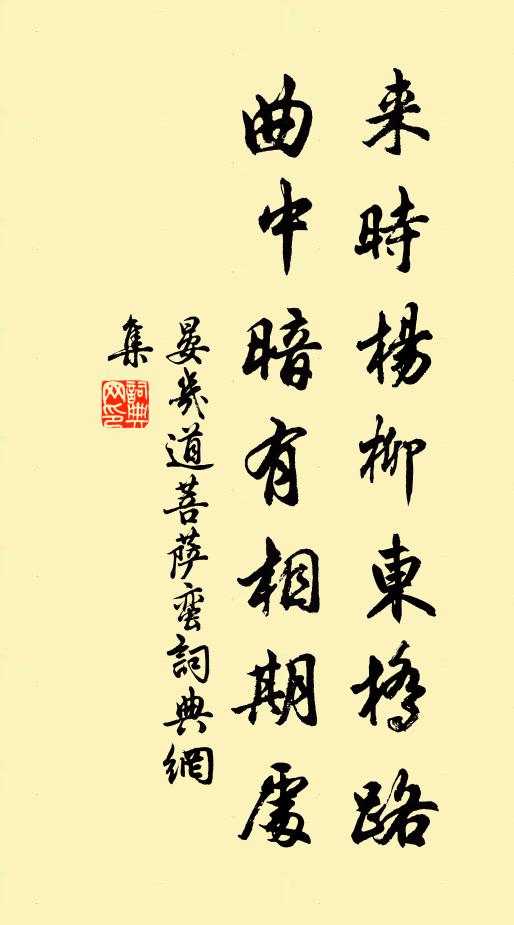 来時楊柳東橋路
曲中暗有相期處
晏幾道菩薩蠻詞典網
集
詞典網印